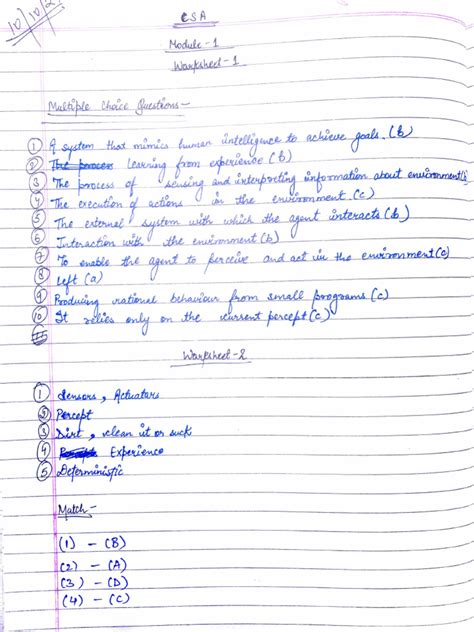 10/10/2
CSA
Module-1
Worksheet-1
Multiple Choice Questions-
① A system that mimics human intelligence to achieve goals. (b)
② Learning from experience (b)
③ The process of sensing and interpreting information about environment(
④ The execution of actions in the environment (c)
⑤ The external system with which the agent interacts (b)
⑥ Interaction with the environment (b)
⑦ To enable the agent to perceive and act in the environment (c)
⑧ Left (a)
⑨ Producing rational behaviour from small programs (c)
⑩ It relies only on the current percept (c)
Worksheet-2
① Sensors, Actuators
② Percept
③ Dirt, clean it or suck
④ Experience
⑤ Deterministic
Match-
(1) - (B)
(2) - (A)
(3) - (D)
(4) - (C)